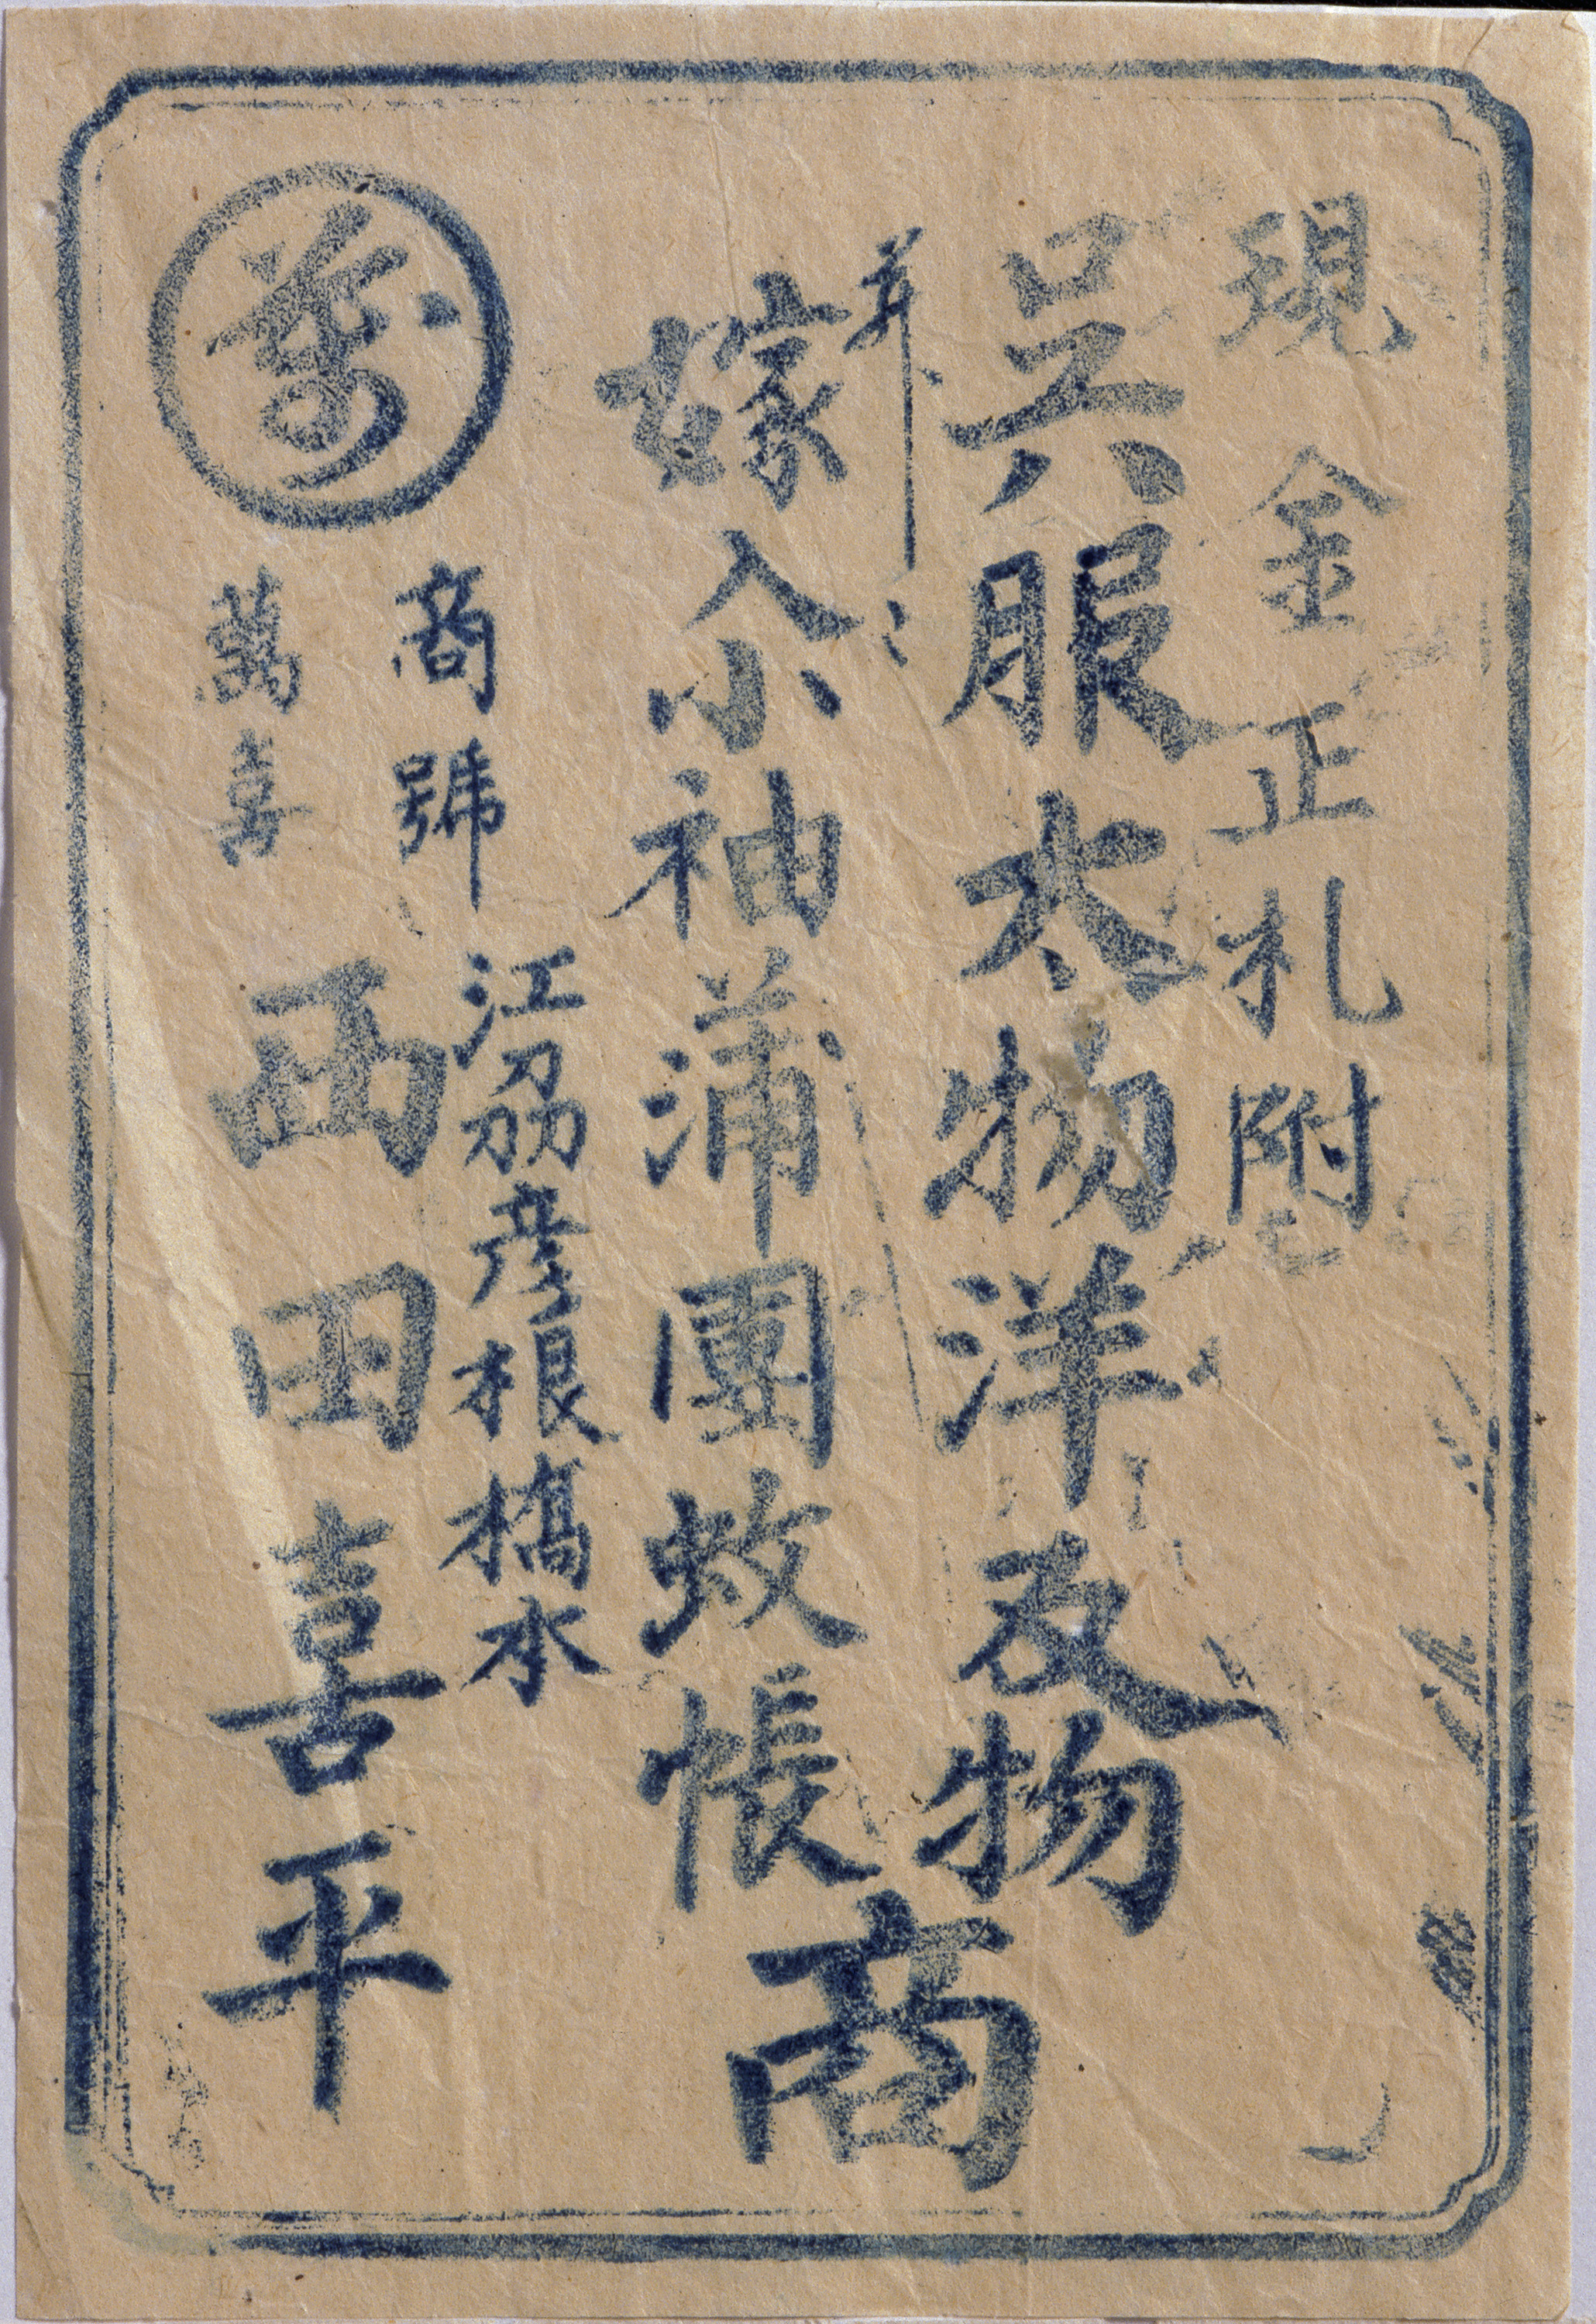 現金正札附
呉服太物洋反物
并ニ
嫁入小袖蒲團蚊帳
商
江刕彦根橋本
商號
萬喜
萬
西田喜平